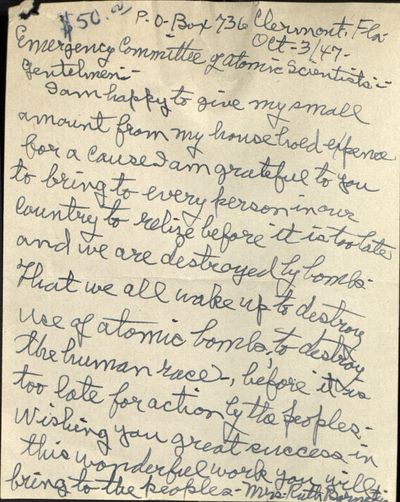 $50.00 P.O-Box 736 Clermont. Fla-
Oct-3/47-
Emergency Committee of atomic Scientists:-
Gentelmen:-
I am happy to give my small
amount from my household expence
for a cause I am grateful to you
to bring to every person in our
Country to relize before it is too late
and we are destroyed by bombs-
That we all wake up to destroy
use of atomic bombs, to destroy
the human race, before it is
too late for action by the peoples-
Wishing you great success in
this wonderful work you will
bring to the peoples- Mrs Ruth